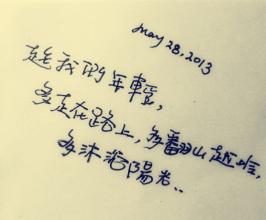 May 28, 2013
趁我的年輕,
多走在路上,多翻山越嶺,
多沐浴陽光..